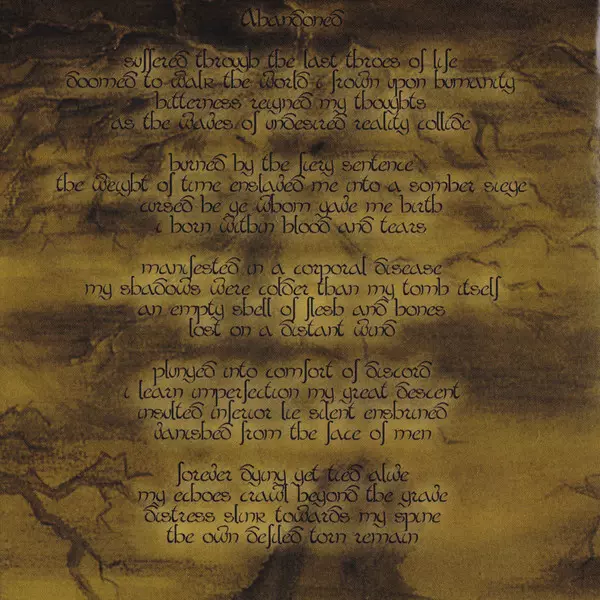 Abandoned
suffered through the last throes of life
doomed to walk the world i frown upon humanity
bitterness reigned my thoughts
as the waves of undesired reality collide
burned by the fiery sentence
the weight of time enslaved me into a somber siege
cursed be ye whom gave me birth
i born within blood and tears
manifested in a corporal disease
my shadows were colder than my tomb itself
an empty shell of flesh and bones
lost on a distant wind
plunged into comfort of discord
i learn imperfection my great descent
insulted inferior lie silent enshrined
vanished from the face of men
forever dying yet tied alive
my echoes crawl beyond the grave
distress slink towards my spine
the own defiled torn remain